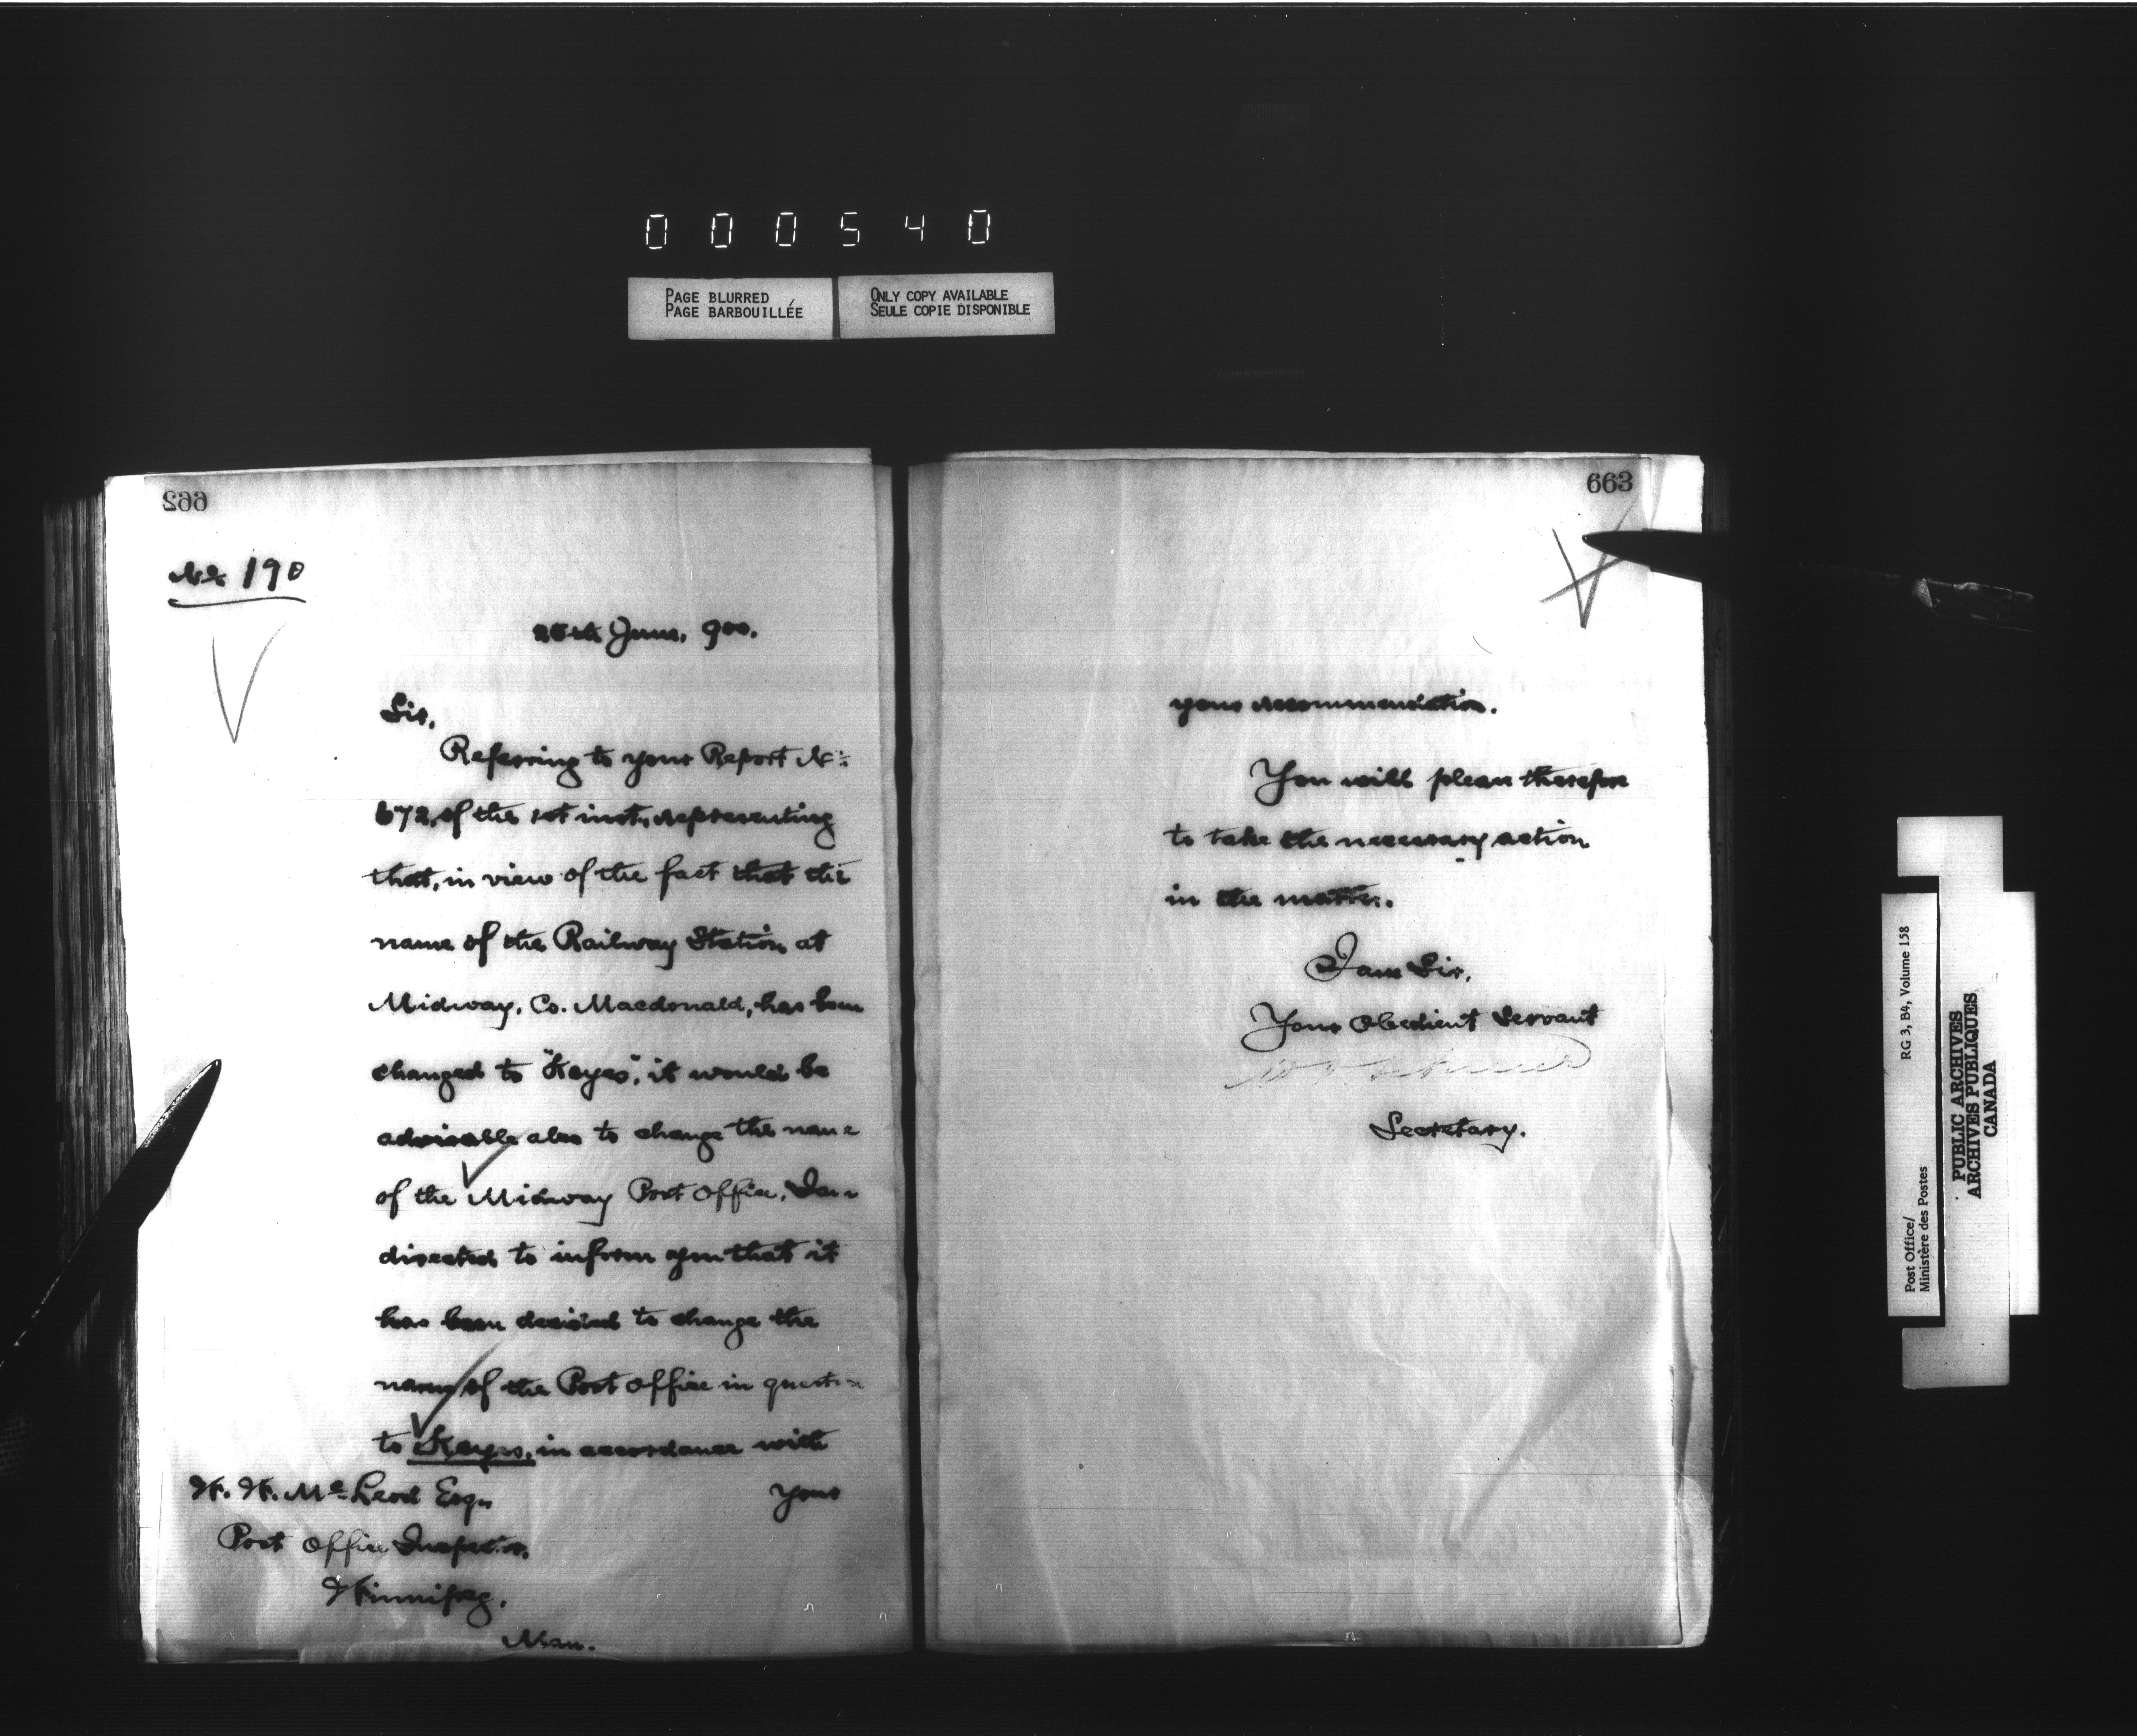 000540
PAGE BLURRED
PAGE BARBOUILLÉE
ONLY COPY AVAILABLE
SEULE COPIE DISPONIBLE
662
No. 190
25th June, 900.
Sir,
Referring to your Report No.
672, of the 1st inst., representing
that, in view of the fact that the
name of the Railway Station at
Midway, Co. Macdonald, has been
changed to "Keyes", it would be
advisable also to change the name
of the Midway Post Office, I am
directed to inform you that it
has been decided to change the
name of the Post Office in question
to Keyes, in accordance with
your
W. W. McLeod Esq.,
Post Office Inspector,
Winnipeg,
Man.
663
your recommendation.
You will please therefore
to take the necessary action
in the matter.
I am Sir,
Your Obedient Servant
Secretary.
Post Office/
Ministère des Postes
RG 3, B4, Volume 158
PUBLIC ARCHIVES
ARCHIVES PUBLIQUES
CANADA